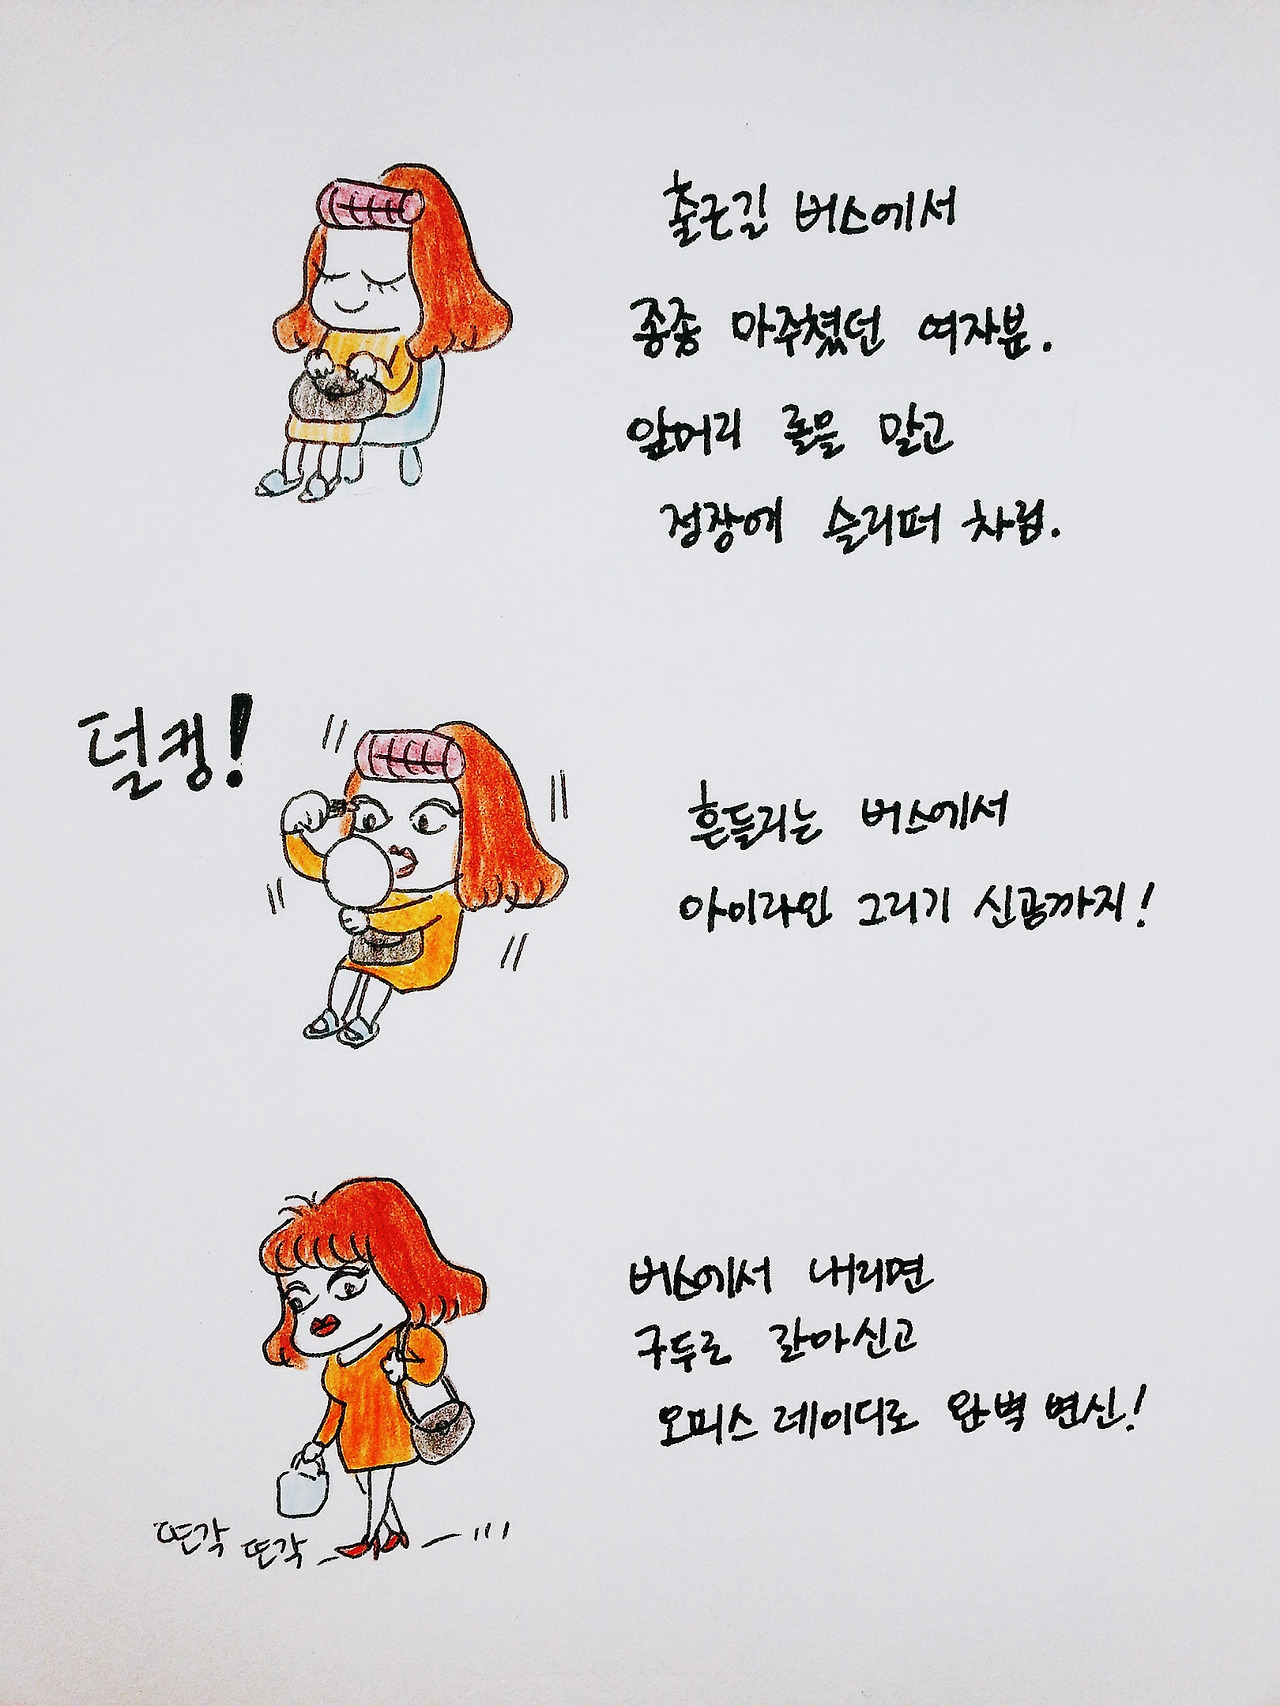 출근길 버스에서
종종 마주쳤던 여자분.
앞머리 롤을 말고
정장에 슬리퍼 차림.
덜컹!
흔들리는 버스에서
아이라인 그리기 신공까지!
버스에서 내리면
구두로 갈아신고
오피스 레이디로 완벽 변신!
또각 또각